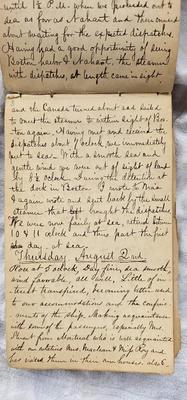 until 1½ P.M. when we proceeded out to
sea as far as Nahant and then round
about waiting for the expected dispatches.
Having had a good opportunity of seeing
Boston harbor & Nahant, the steamer
with dispatches, at length came in sight
and the Canada turned about and sailed
to meet the steamer to within sight of Bos-
ton again. Having met and received the
dispatches about 7 o'clock we immediately
put to sea. With a smooth sea and
gentle wind we were out of sight of land
by 8 o'clock. During the detention at
the dock in Boston I wrote to
I again wrote and sent back by the small
steamer that brought the dispatches.
We were now fairly at sea, retired between
10 & 11 o'clock and thus past the first
day, at sea.
Thursday, August 2nd.
Rose at 7 o'clock, Day fine, sea smooth
wind favorable, all well, Little of in-
terest transpired, becoming better used
to our accommodations and the confine-
ments of the ship. Making acquaintance
with some of the passengers, especially Mrs.
from Montreal who is well acquainted
with our relatives Mrs. and Miss Roy and
has visited them in their own houses, also